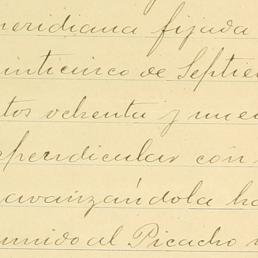 meridiana fijada
einticinco de Septie
tos ochenta y nue
ependicular con
avanzándola ha
unido al Picacho